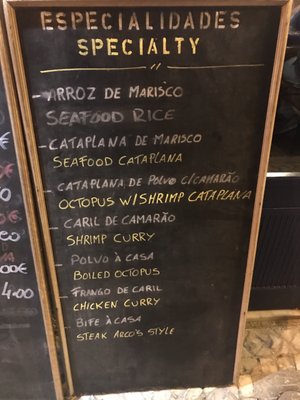 ESPECIALIDADES
SPECIALTY
ARROZ DE MARISCO
SEAFOOD RICE
CATAPLANA DE MARISCO
SEAFOOD CATAPLANA
CATAPLANA DE POLVO C/CAMARÃO
OCTOPUS W/SHRIMP CATAPLANA
CARIL DE CAMARÃO
SHRIMP CURRY
POLVO À CASA
BOILED OCTOPUS
FRANGO DE CARIL
CHICKEN CURRY
BIFE À CASA
STEAK ARCO'S STYLE
4.00